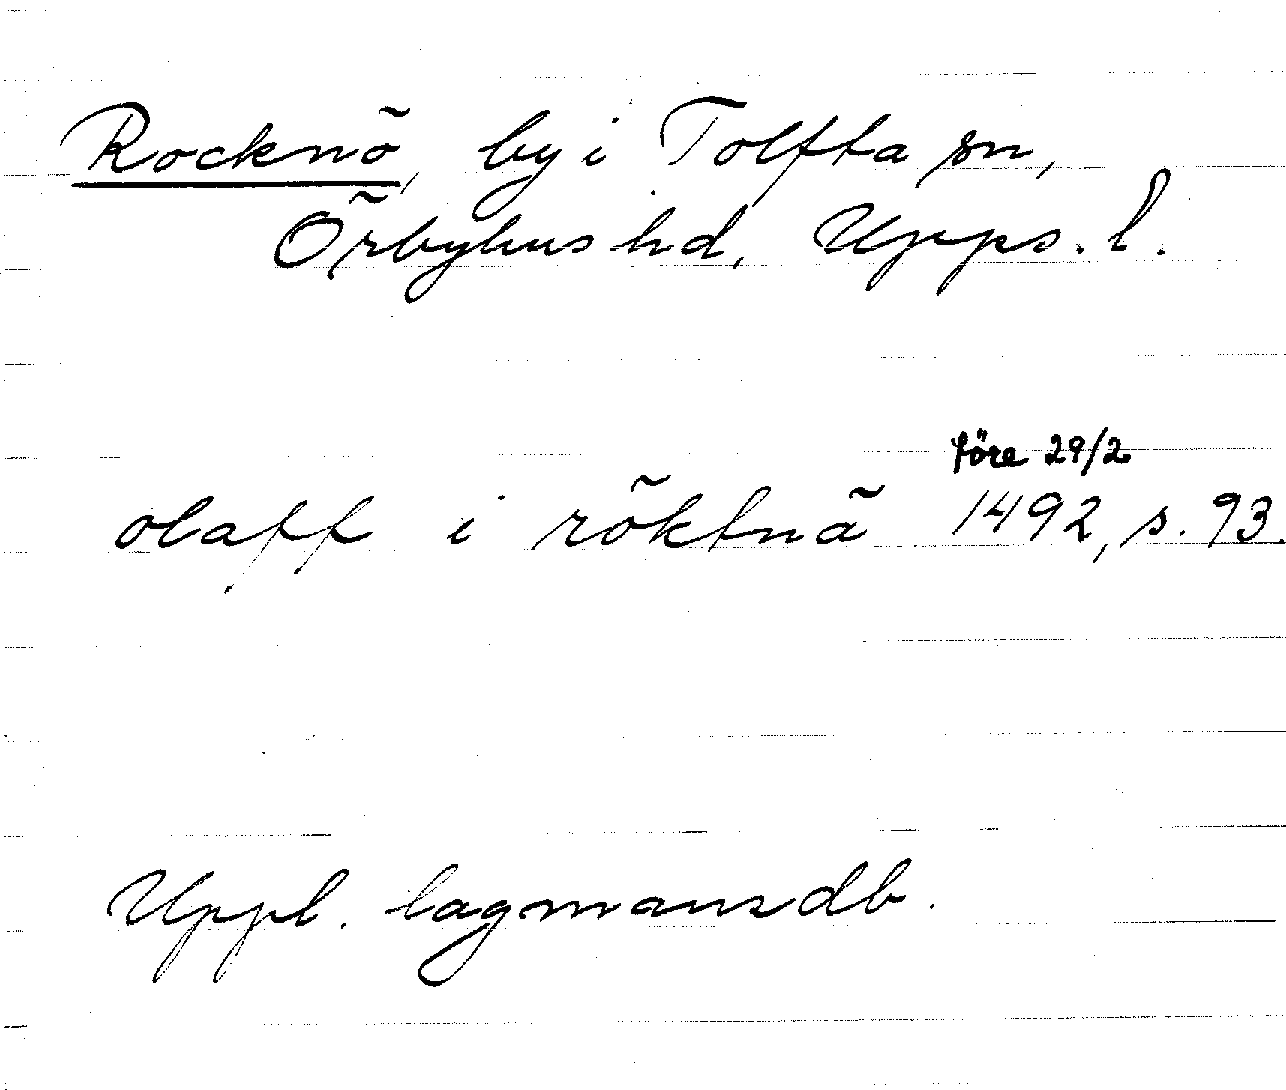 Rocknö, by i Tolfta sn,
Örbyhus hd, Upps. l.
före 29/2
olaff i röktnä 1492, s. 93.
Uppl. lagmansdb.